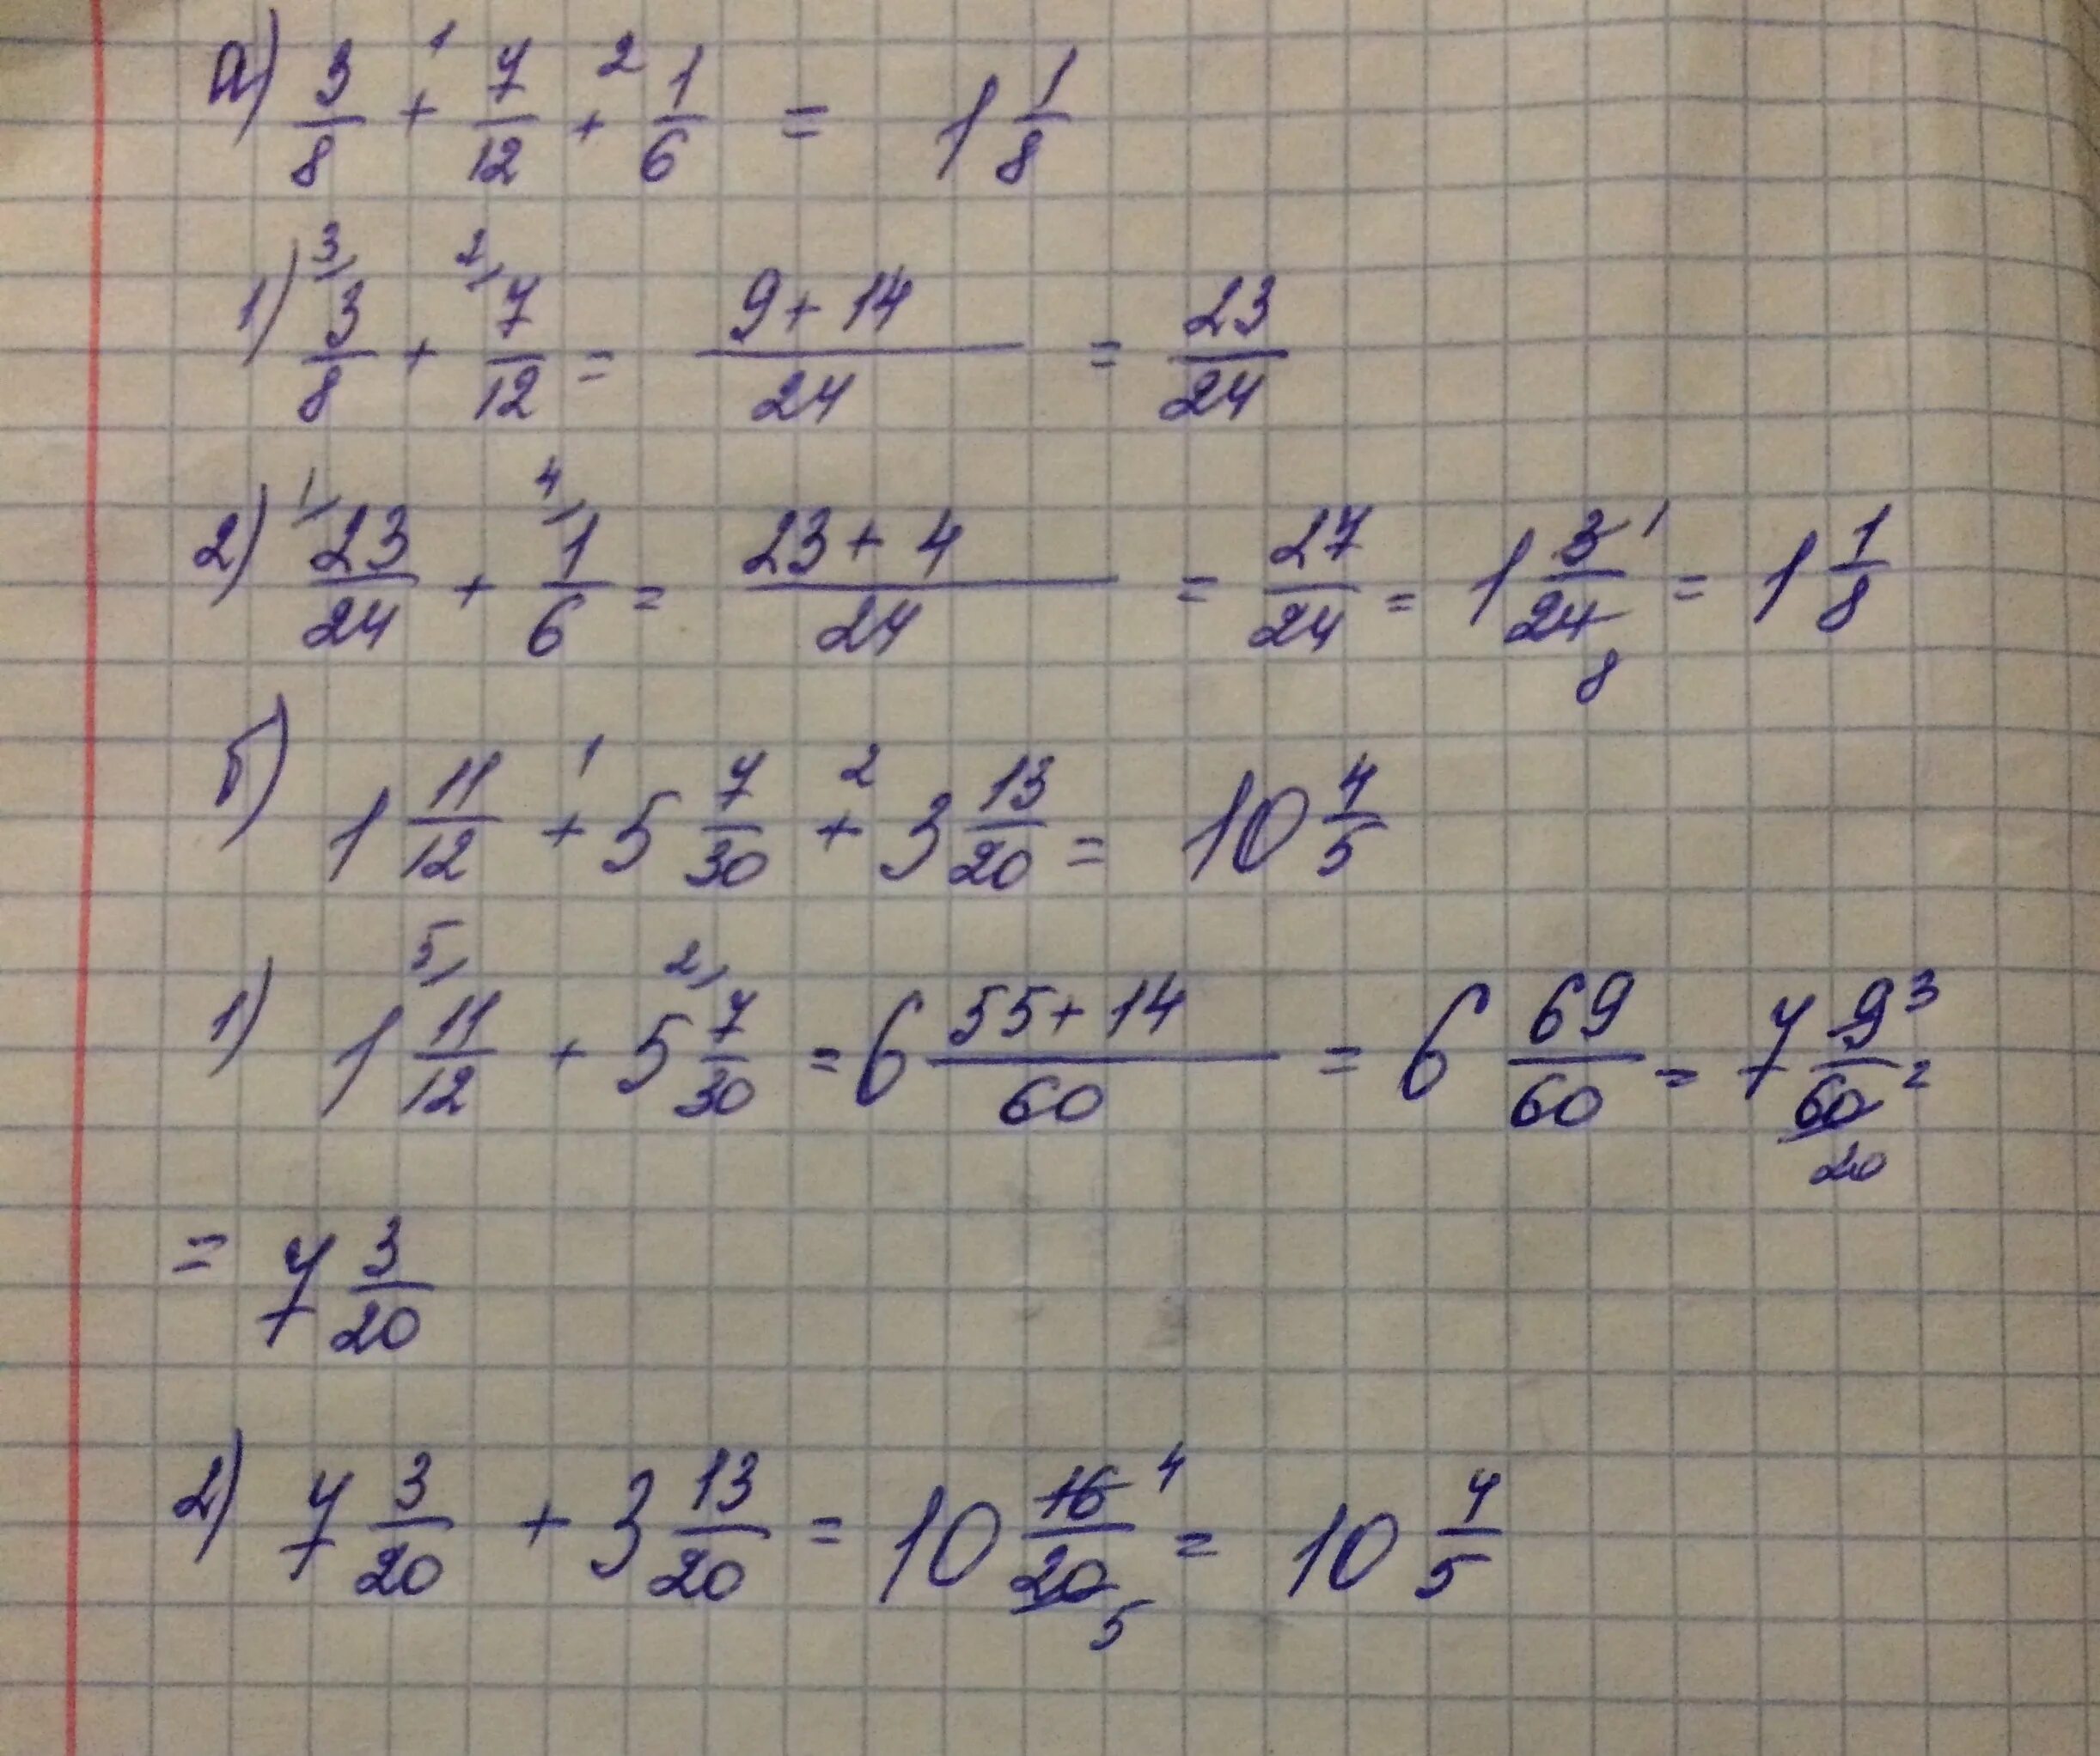 а) 3/8 +¹ 7/12 +² 1/6 = 1 1/8
1) 3/8 ³ + 7/12 ² = (9 + 14)/24 = 23/24
2) 23/24 ¹ + 1/6 ⁴ = (23 + 4)/24 = 27/24 = 1 3/24 ¹ ₈ = 1 1/8
б) 1 11/12 +¹ 5 7/30 +² 3 13/20 = 10 4/5
1) 1 11/12 ⁵ + 5 7/30 ² = 6 (55 + 14)/60 = 6 69/60 = 7 9/60 ³ ₂₀ =
= 7 3/20
2) 7 3/20 + 3 13/20 = 10 16/20 ⁴ ₅ = 10 4/5